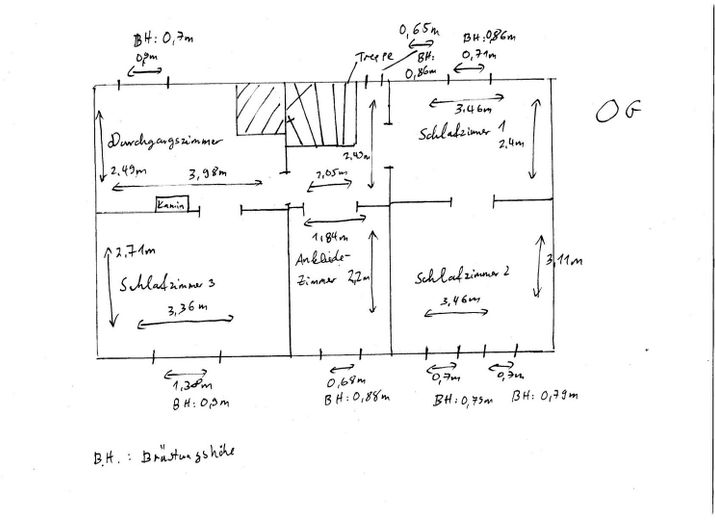 BH: 0,7m
0,9m
0,65m
BH:
0,86m
BH: 0,86m
0,71m
Treppe
OG
Durchgangszimmer
2,49m
3,98m
3,46m
Schlafzimmer 1
2,4m
2,05m
Kamin
1,84m
2,71m
Schlafzimmer 3
3,36m
Ankleide-
Zimmer 2,2m
Schlafzimmer 2
3,46m
3,11m
1,38m
BH: 0,9m
0,68m
BH: 0,88m
0,7m
BH: 0,79m
0,7m
BH: 0,79m
B.H. : Brüstungshöhe